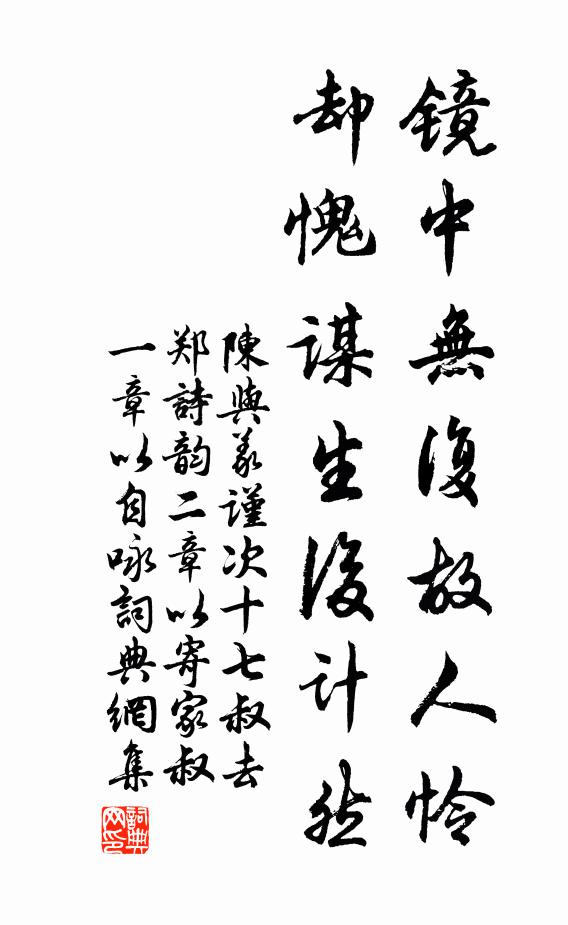 镜中無復故人怜
却愧謀生後计然
陳與義谨次十七叔去
郑詩韵二章以寄家叔
一章以自咏詞典網集
詞典网印